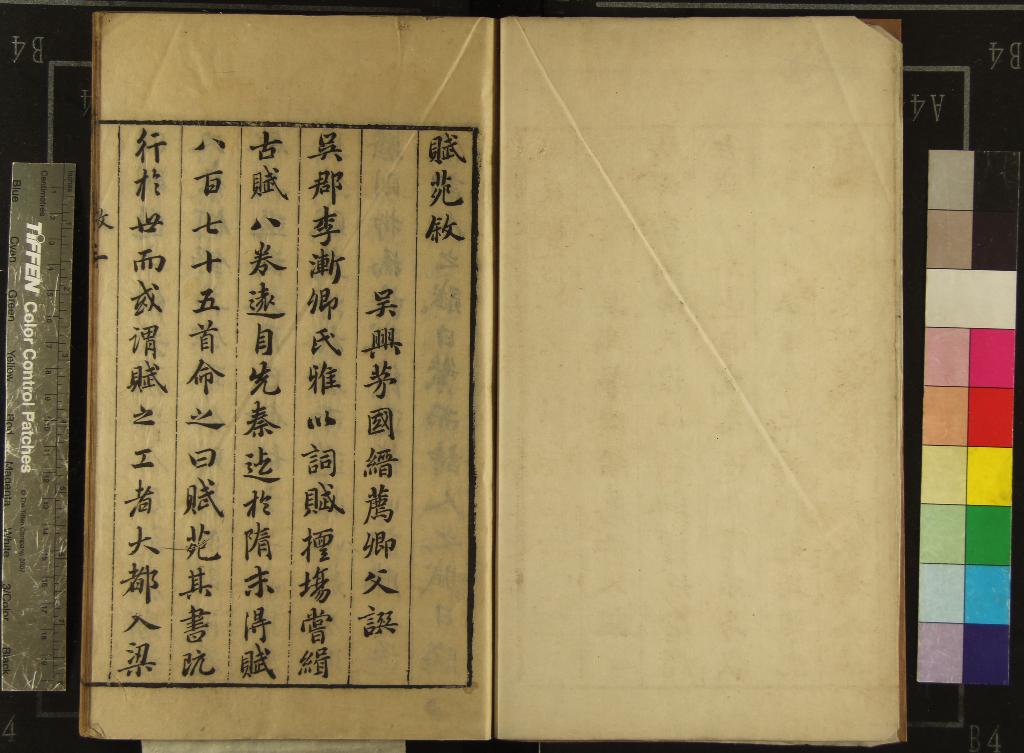 賦苑敘
吳興茅國縉薦卿父譔
吳郡李漸卿氏雅以詞賦擅塲嘗緝
古賦八卷遠自先秦迄於隋末得賦
八百七十五首命之曰賦苑其書既
行於世而或謂賦之工者大都入梁
敘 一
TIFFEN Color Control Patches
© The Tiffen Company, 2007
Centimetres
Inches
Blue
Cyan
Green
Yellow
Red
Magenta
White
3/Color
Black
B4
B4
A4
B4
4